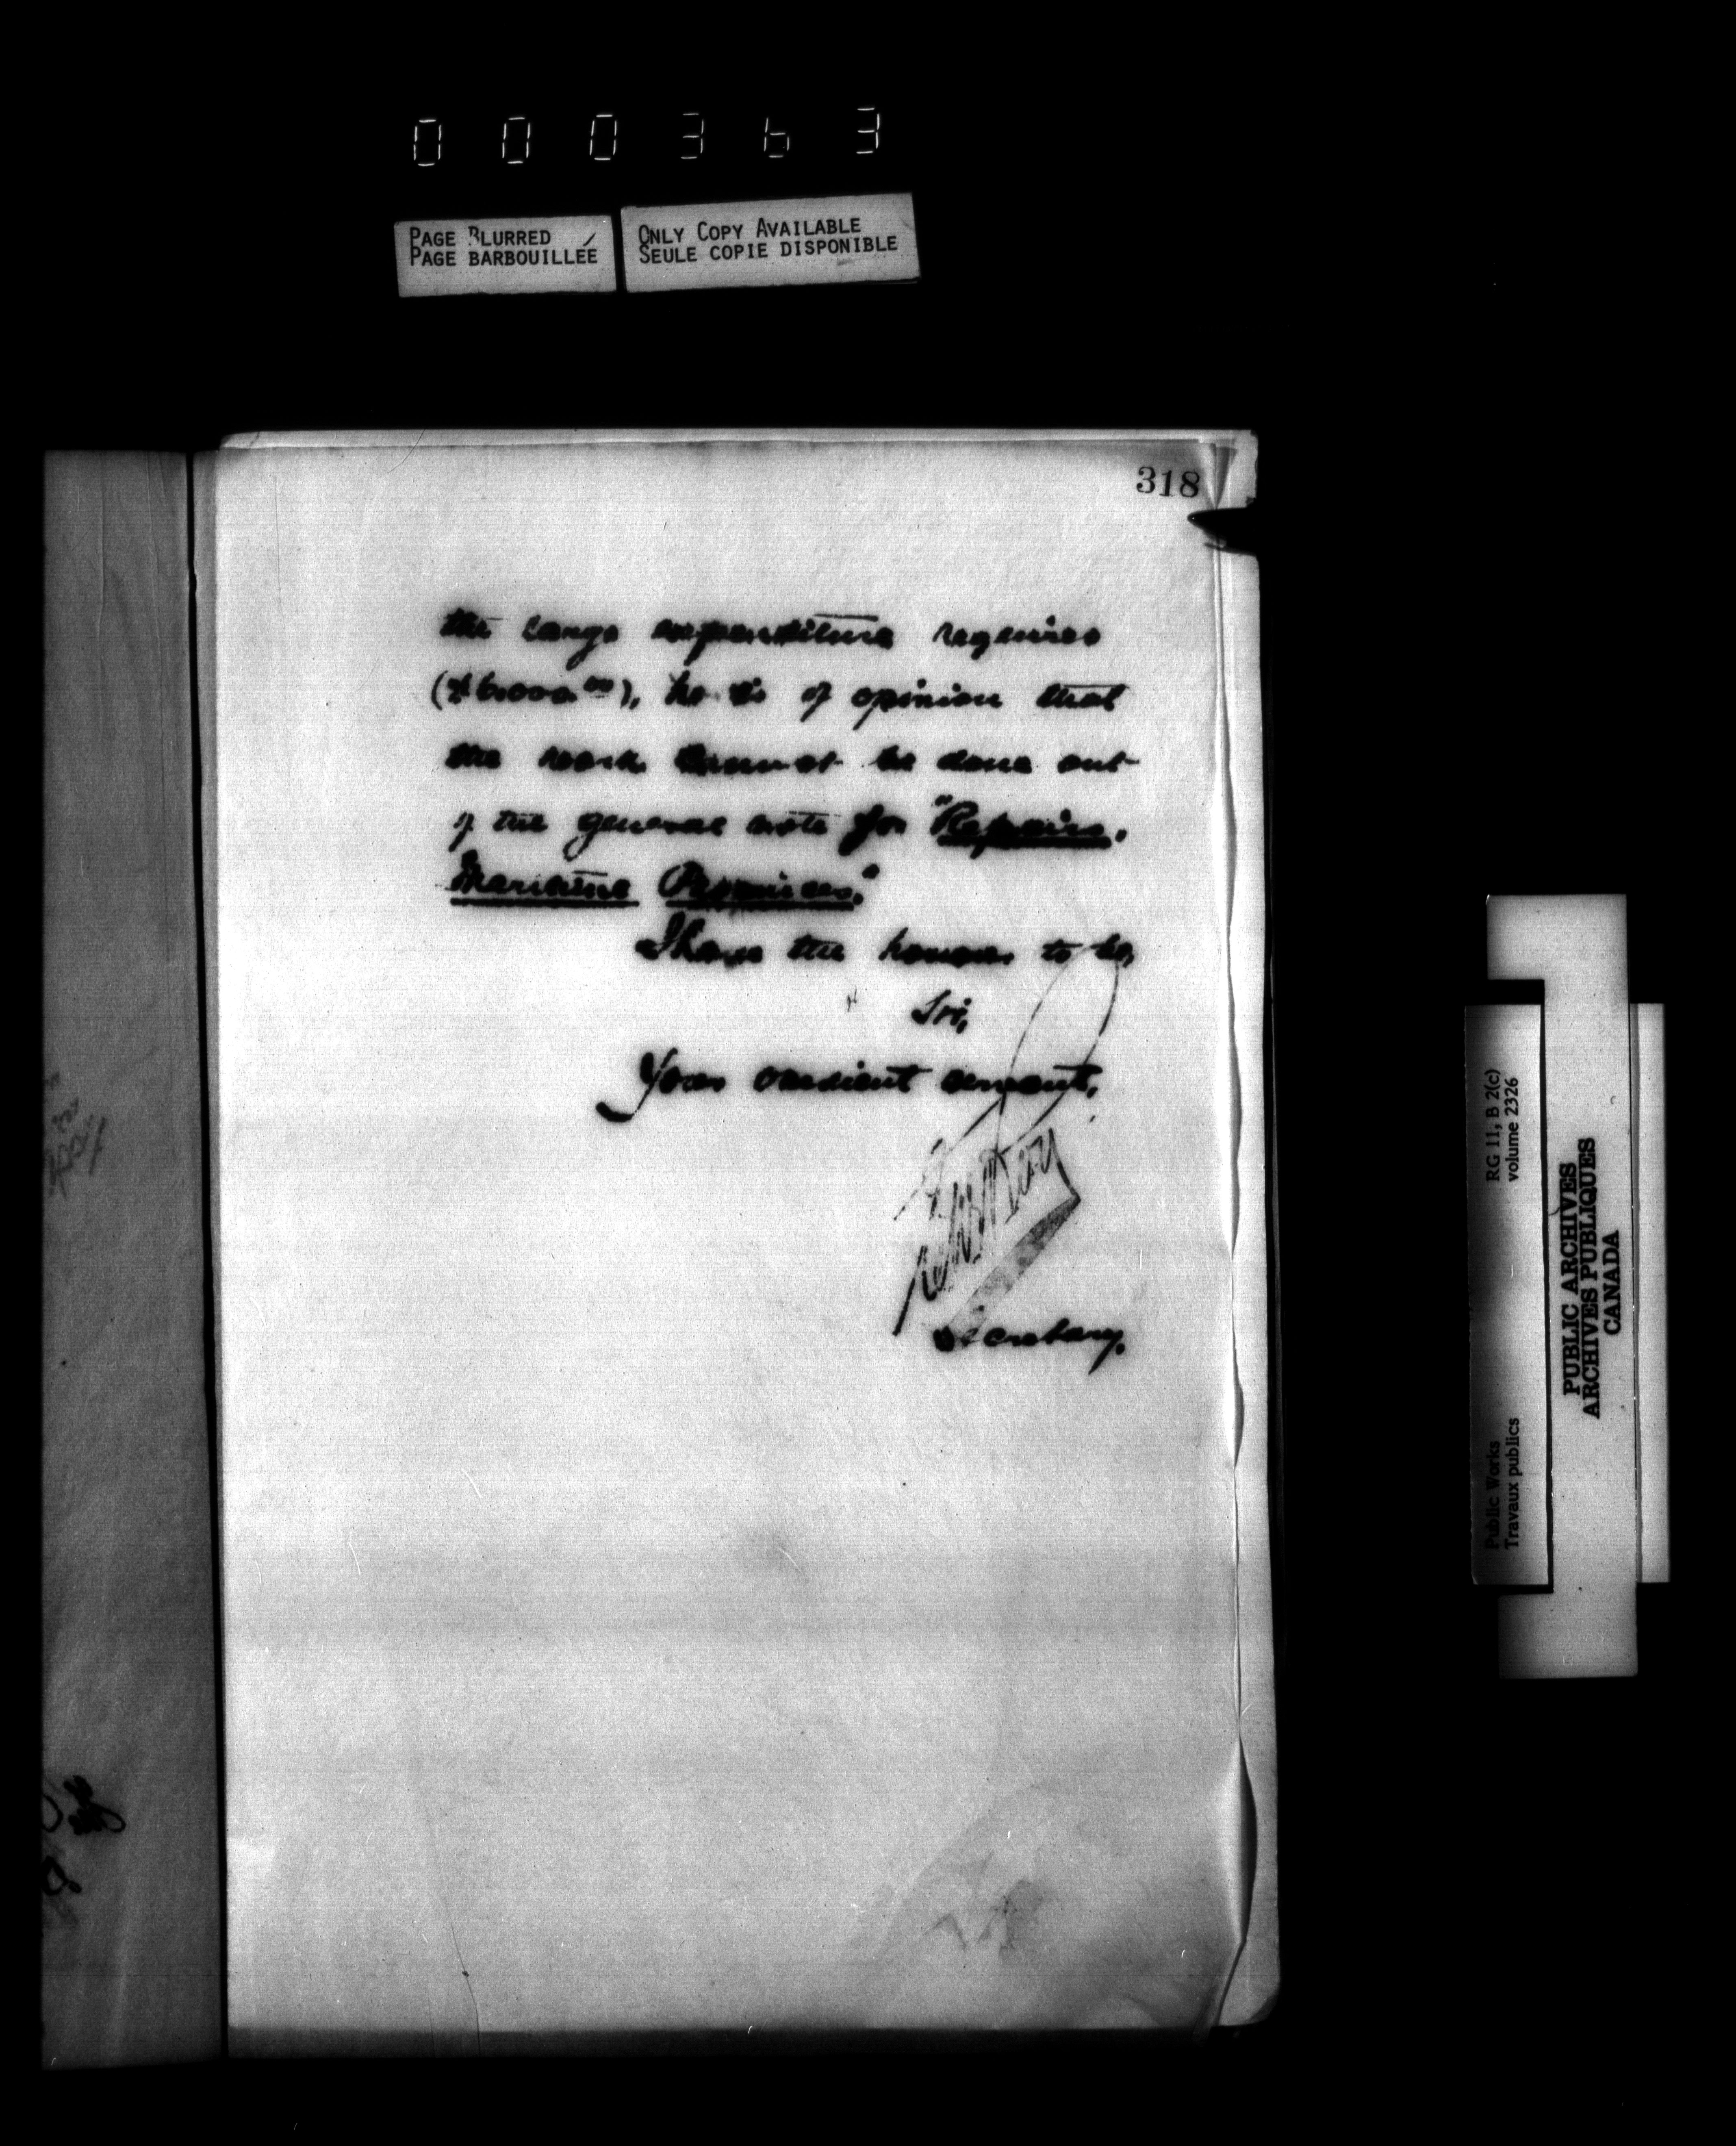 000363
PAGE BLURRED
PAGE BARBOUILLÉE
ONLY COPY AVAILABLE
SEULE COPIE DISPONIBLE
318
the large expenditure required
($6,000.00), he is of opinion that
the work cannot be done out
of the general vote for "Repairs,
Maritime Provinces."
I have the honour to be,
Sir,
Your obedient servant,
Secretary.
RG 11, B 2(c)
volume 2326
Public Works
Travaux publics
PUBLIC ARCHIVES
ARCHIVES PUBLIQUES
CANADA